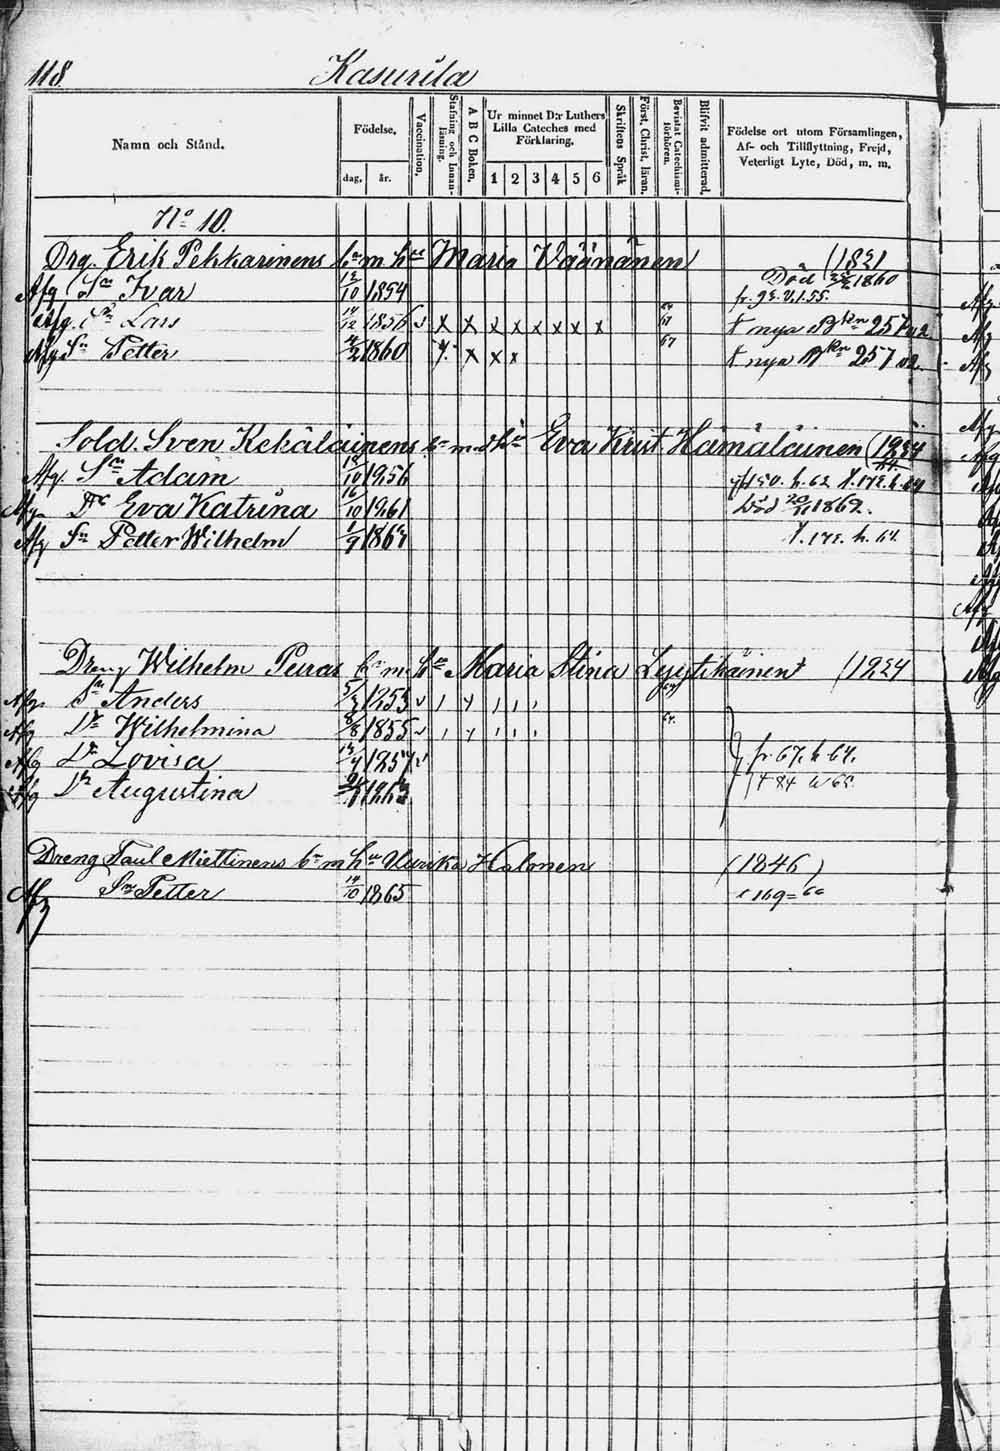 118. Kasurila
Namn och Stånd.
Födelse,
dag,
år.
Vaccination.
Stafning och Innan-läsning.
A B C Boken.
Ur minnet D:r Luthers
Lilla Cateches med
Förklaring,
1 2 3 4 5 6
Skriftens Språk
Först. Christ. läran.
Bevistat Catechismi-förhören.
Blifvit admitterad.
Födelse ort utom Församlingen,
Af- och Tillflyttning, Frejd,
Veterligt Lyte, Död, m. m.
No 10.
Drg. Erik Pekkarinens bn m hu Maria Väänänen (1831
Afg Sn Ivar 12/10 1854 Död 1860
Afg. Sn Lars 14/12 1856 v x x x x x x x x 67 t nya Bken 257
Afg Sn Petter 1860 x x x x 67 t nya Bken 257
Sold. Sven Kekäläinens bn m. d hu Eva Krist. Hämäläinen (1834
Afg. Sn Adam 1856
Afg Dr Eva Katrina 16/10 1861 Död 1862.
Afg Sn Petter Wilhelm 1/9 186
Dreng Wilhelm Peiras bn m. hu Maria Stina Lyytikäinen (1824
Afg. Sn Anders 1853 v
Afg Dr Wilhelmina 8/8 1855 v
Afg Dr Lovisa 1857 v fr. 67. h 64.
Afg Dr Augustina 1863
Dreng Paul Miettinens bn m hu Ulrika Halonen (1846)
Afg Sn Petter 14/10 1865 169